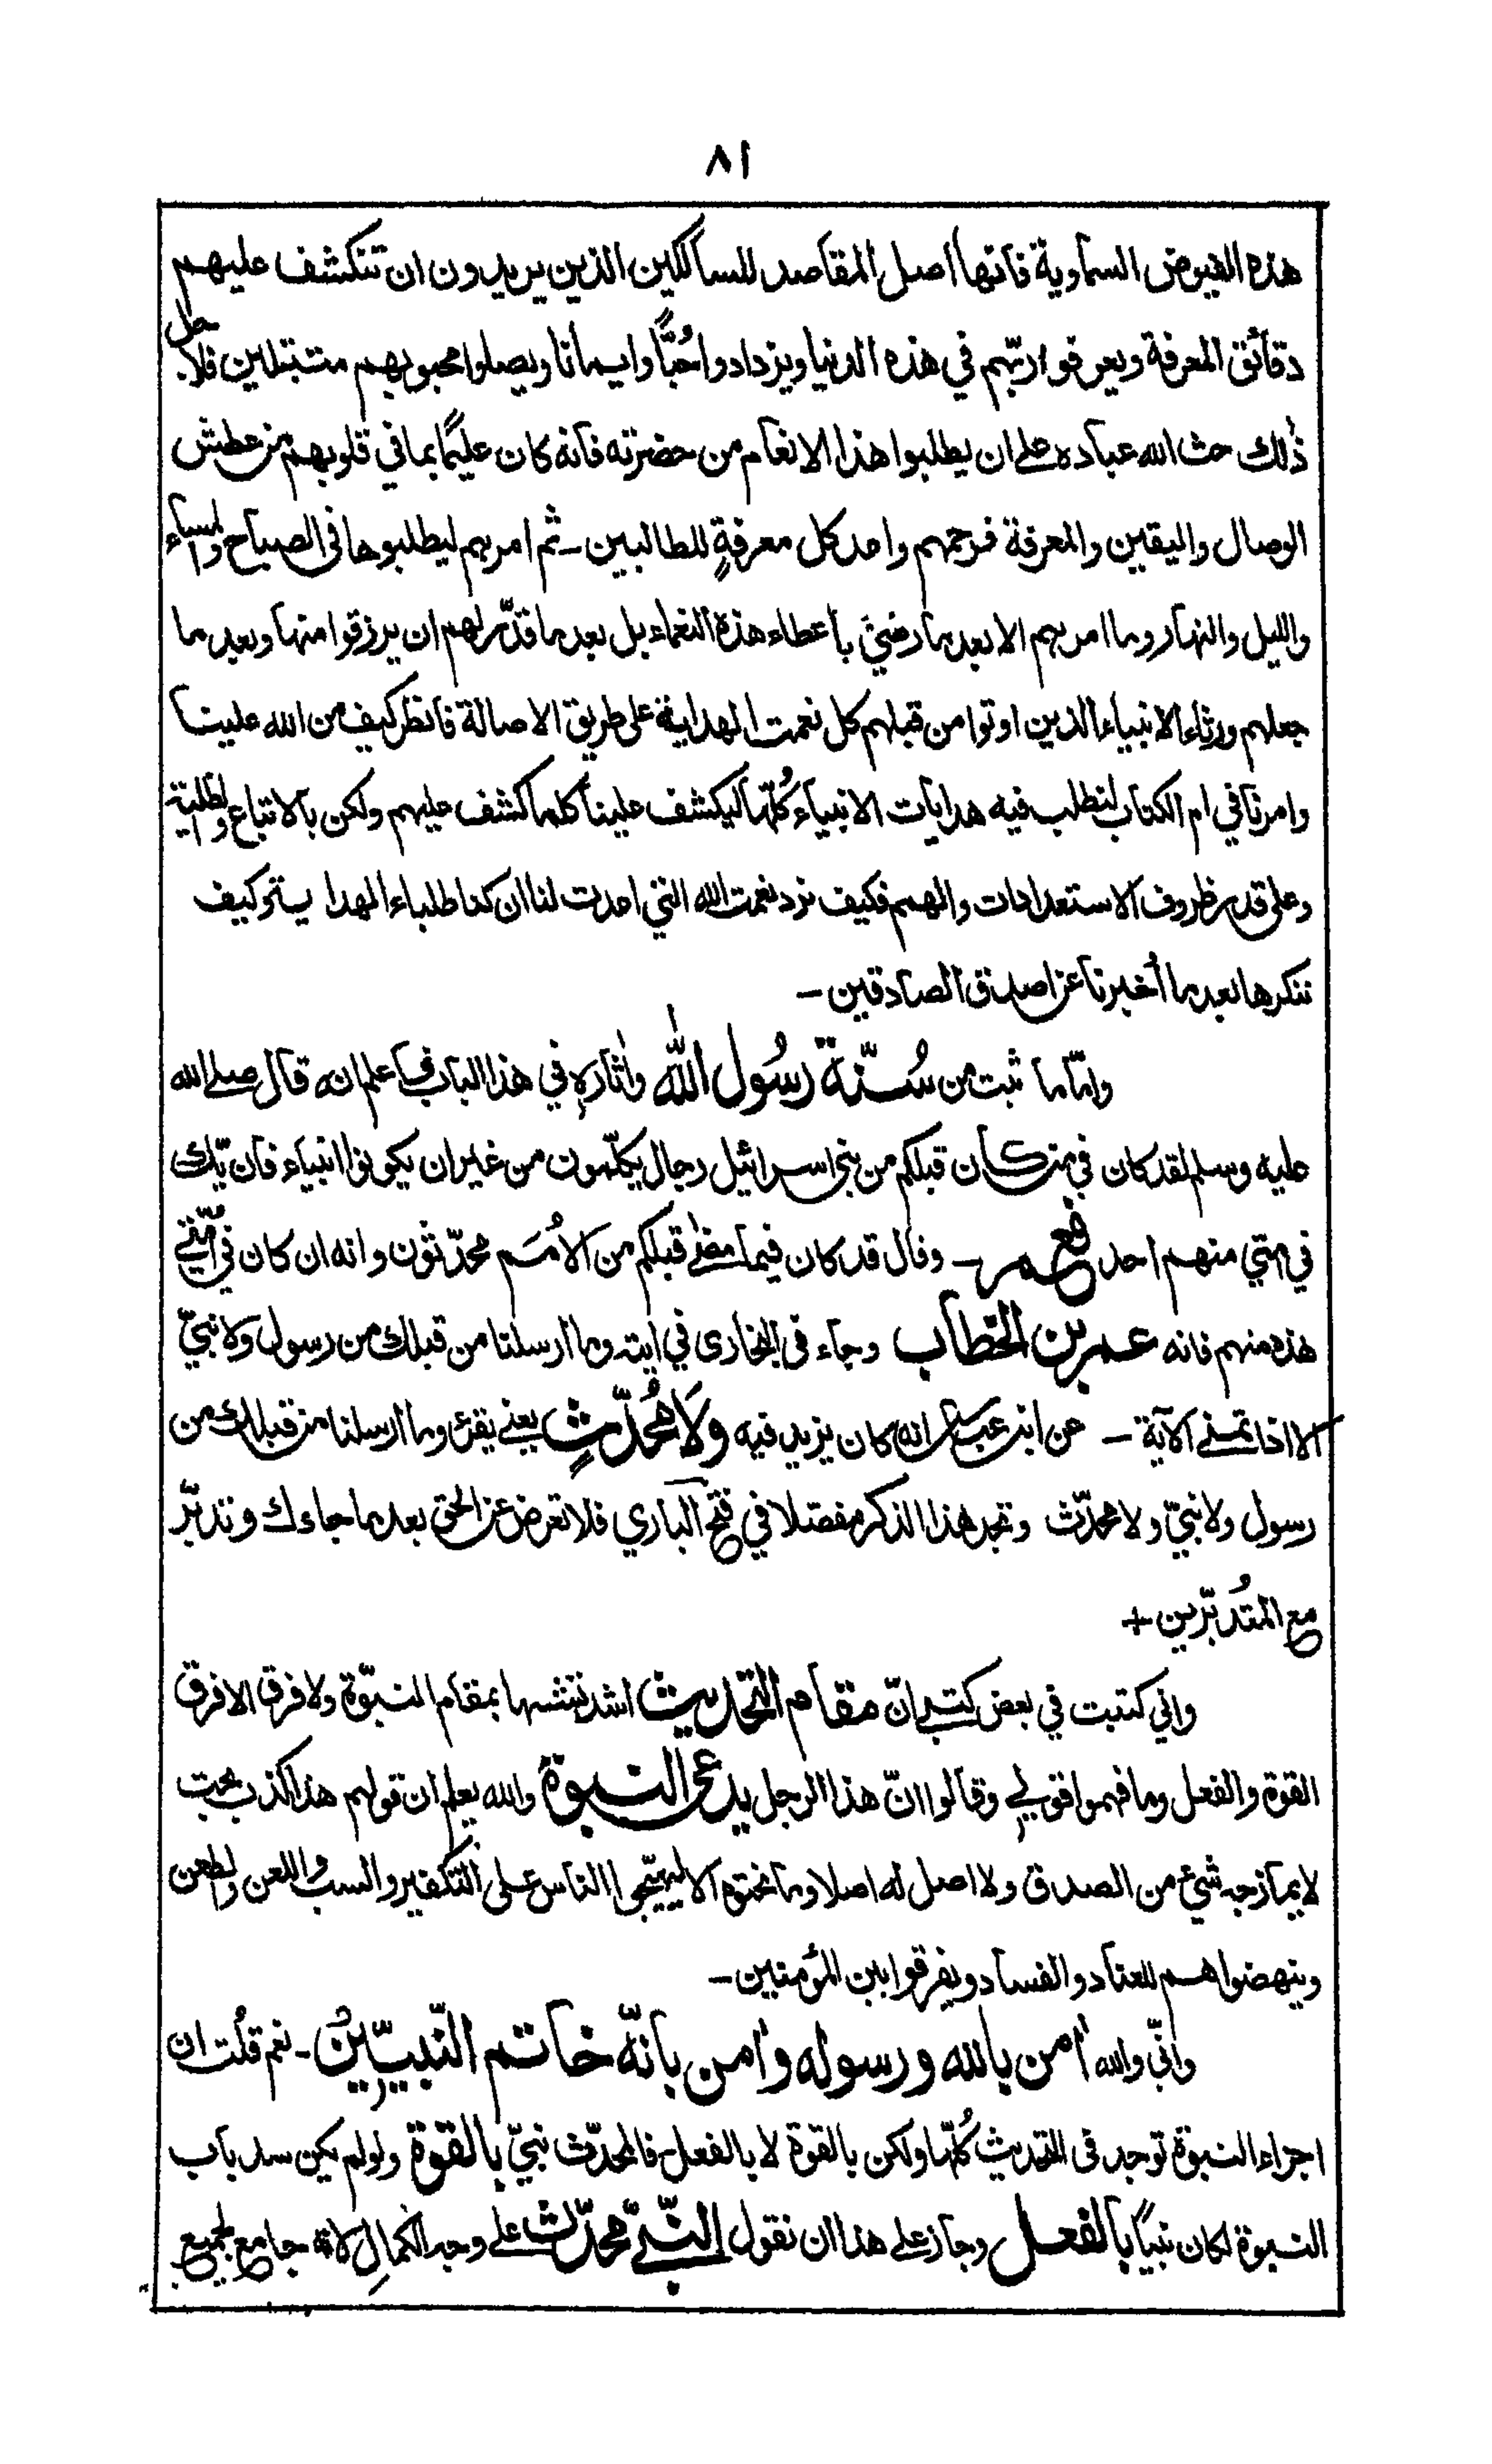 ٨١
هذه الفيوض السماوية فانها اصل المقاصد للسالكين الذين يريدون ان تنكشف عليهم
دقائق المعرفة ويعرفوا ربّهم في هذه الدنيا ويزدادوا حُبًّا وايمانا ويصلوا محبوبهم متبتلين فلاجل
ذٰلك حث الله عباده على ان يطلبوا هذا الانعام من حضرته فانه كان عليمًا بما في قلوبهم من عطش
الوصال واليقين والمعرفة فرحمهم واعد كل معرفةٍ للطالبين ـ ثم امرهم ليطلبوها فى الصباح والمساء
والليل والنهار وما امرهم الا بعد ما رضي باعطاء هذه النعماء بل بعد ما قدّر لهم ان يرزقوا منها وبعد ما
جعلهم ورثاء الانبياء الذين اوتوا من قبلهم كل نعمت الهداية على طريق الاصالة فانظر كيف من الله علينا
وامرنا في ام الكتاب لنطلب فيه هدايات الانبياء كُلّها ليكشف علينا كلما كشف عليهم ولكن بالاتباع والظلية
وعلى قدر ظروف الاستعدادات والهمم فكيف نرد نعمت الله التي اعدت لنا ان كنا طلباء الهداية وكيف
ننكرها بعد ما أُخبرنا عن اصدق الصادقين ـ
وامّا ما ثبت من سُنّة رسُول الله واٰثاره في هذا الباب فاعلم انه قال صلى الله
عليه وسلم لقد كان في من كان قبلكم من بنى اسرائيل رجال يكلّمون من غير ان يكونوا انبياء فان يّك
في امتي منهم احد فعمر ـ وقال قد كان فيما مضىٰ قبلكم من الاُمَم محدّثون وانه ان كان في اُمّتي
هذه منهم فانه عمر بن الخطاب وجاء فى البخارى في اٰيته وما ارسلنا من قبلك من رسول ولا نبيّ
الا اذا تمنى الآية ـ عن ابن عباس انه كان يزيد فيه ولا مُحدّثٍ يعني يقرء وما ارسلنا من قبلك من
رسول ولا نبيّ ولا محدّث وتجد هذا الذكر مفصلا في فتح الباري فلا تعرض عن الحق بعد ما جاءك وتدبّر
مع المتُدبّرين +
واني كتبت في بعض كتبي انّ مقام التحديث اشد تشبها بمقام النبوّة ولا فرق الا فرق
القوة والفعل وما فهموا قولي وقالوا انّ هذا الرجل يدعى النبوة والله يعلم ان قولهم هذا كذب بحت
لا يمازجه شيء من الصدق ولا اصل له اصلا وما نحتوه الا ليهيّجوا الناس على التكفير والسب واللعن والطعن
وينهضوهم للعناد والفساد ويفرقوا بين المؤمنين ـ
وانّي والله اٰمن بالله ورسوله واٰمن بانّه خاتم النّبيّين ـ نعم قلُت ان
اجزاء النبوّة توجد فى التحديث كُلّها ولكن بالقوة لا بالفعل فالمحدّث نبيّ بالقوة ولو لم يكن سد باب
النبوة لكان نبيًا بالفعل وجاز على هذا ان نقول النّبيّ محدّث على وجه الكمالِ لانه جامع لجميع